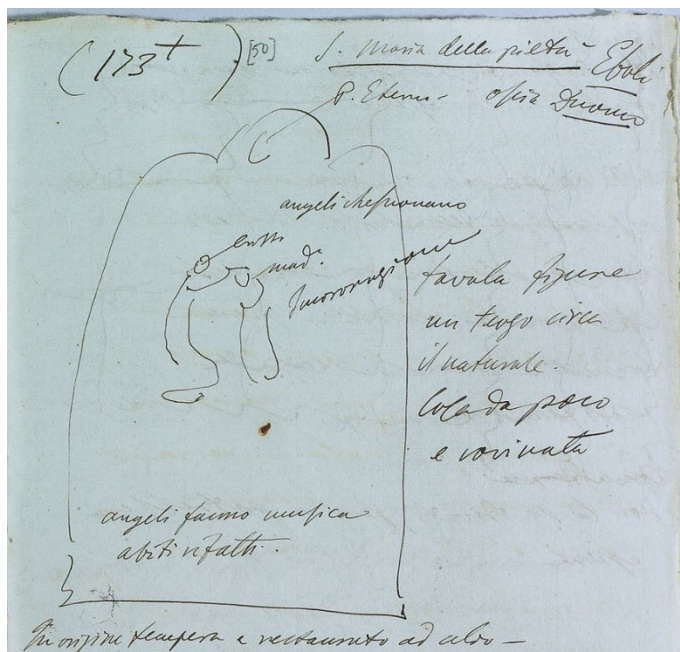 (173+) [50] S. Maria della pietà - Eboli
P. Eterno - ossia Duomo
angeli che suonano
mad.ª
Incoronazione
tavola figure
un terzo circa
il naturale.
cosa da poco
e rovinata
angeli fanno musica
abiti rifatti.
In origine tempera e restaurato ad olio -